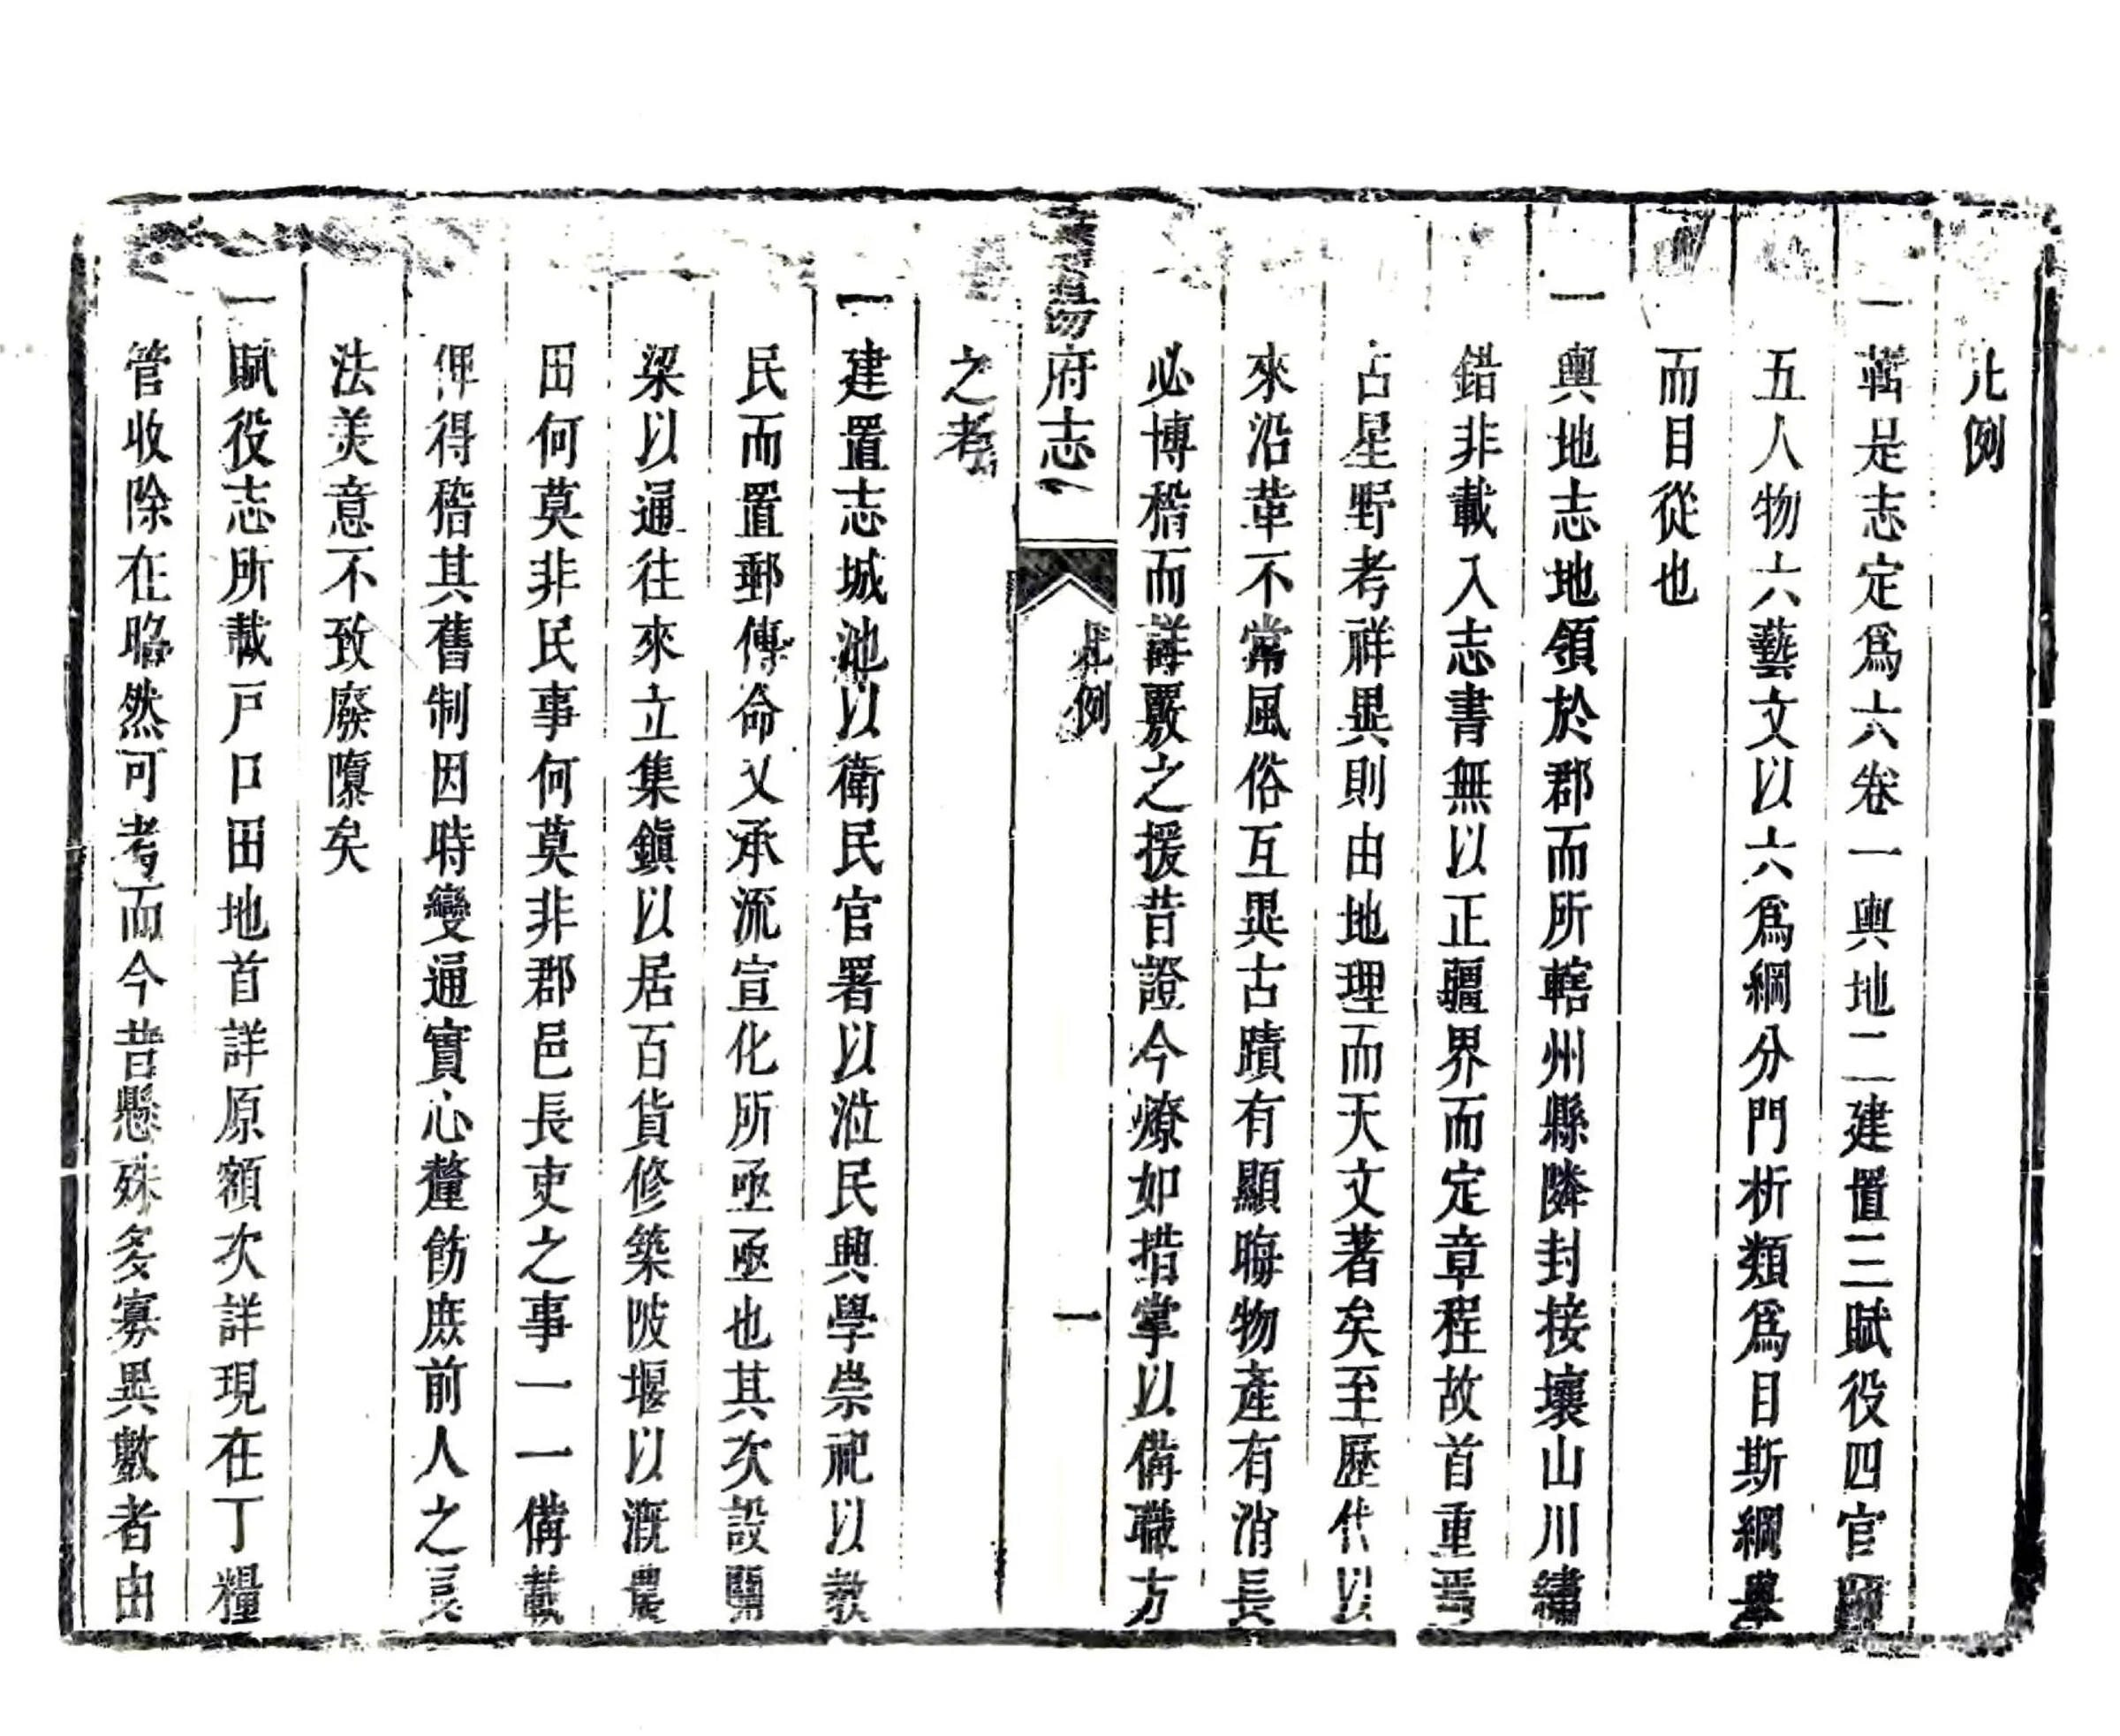 凡例
一舊是志定爲六卷一輿地二建置三賦役四官師
五人物六藝文以六爲綱分門析類爲目斯綱舉
而目從也
一輿地志地領於郡而所轄州縣隣封接壤山川繡
錯非載入志書無以正疆界而定章程故首重焉
占星野考祥異則由地理而天文著矣至歷代以
來沿革不常風俗互異古蹟有顯晦物產有消長
必博稽而詳覈之援昔證今燎如措掌以備職方
府志
凡例
一
之考
一建置志城池以衛民官署以涖民興學崇祀以教
民而置郵傳命又承流宣化所亟亟也其次設關
梁以通往來立集鎭以居百貨修築陂堰以漑農
田何莫非民事何莫非郡邑長吏之事一一備載
俾得稽其舊制因時變通實心釐飭庶前人之良
法美意不致廢隳矣
一賦役志所載戸口田地首詳原額次詳現在丁糧
管收除在晰然可考而今昔懸殊多寡異數者由